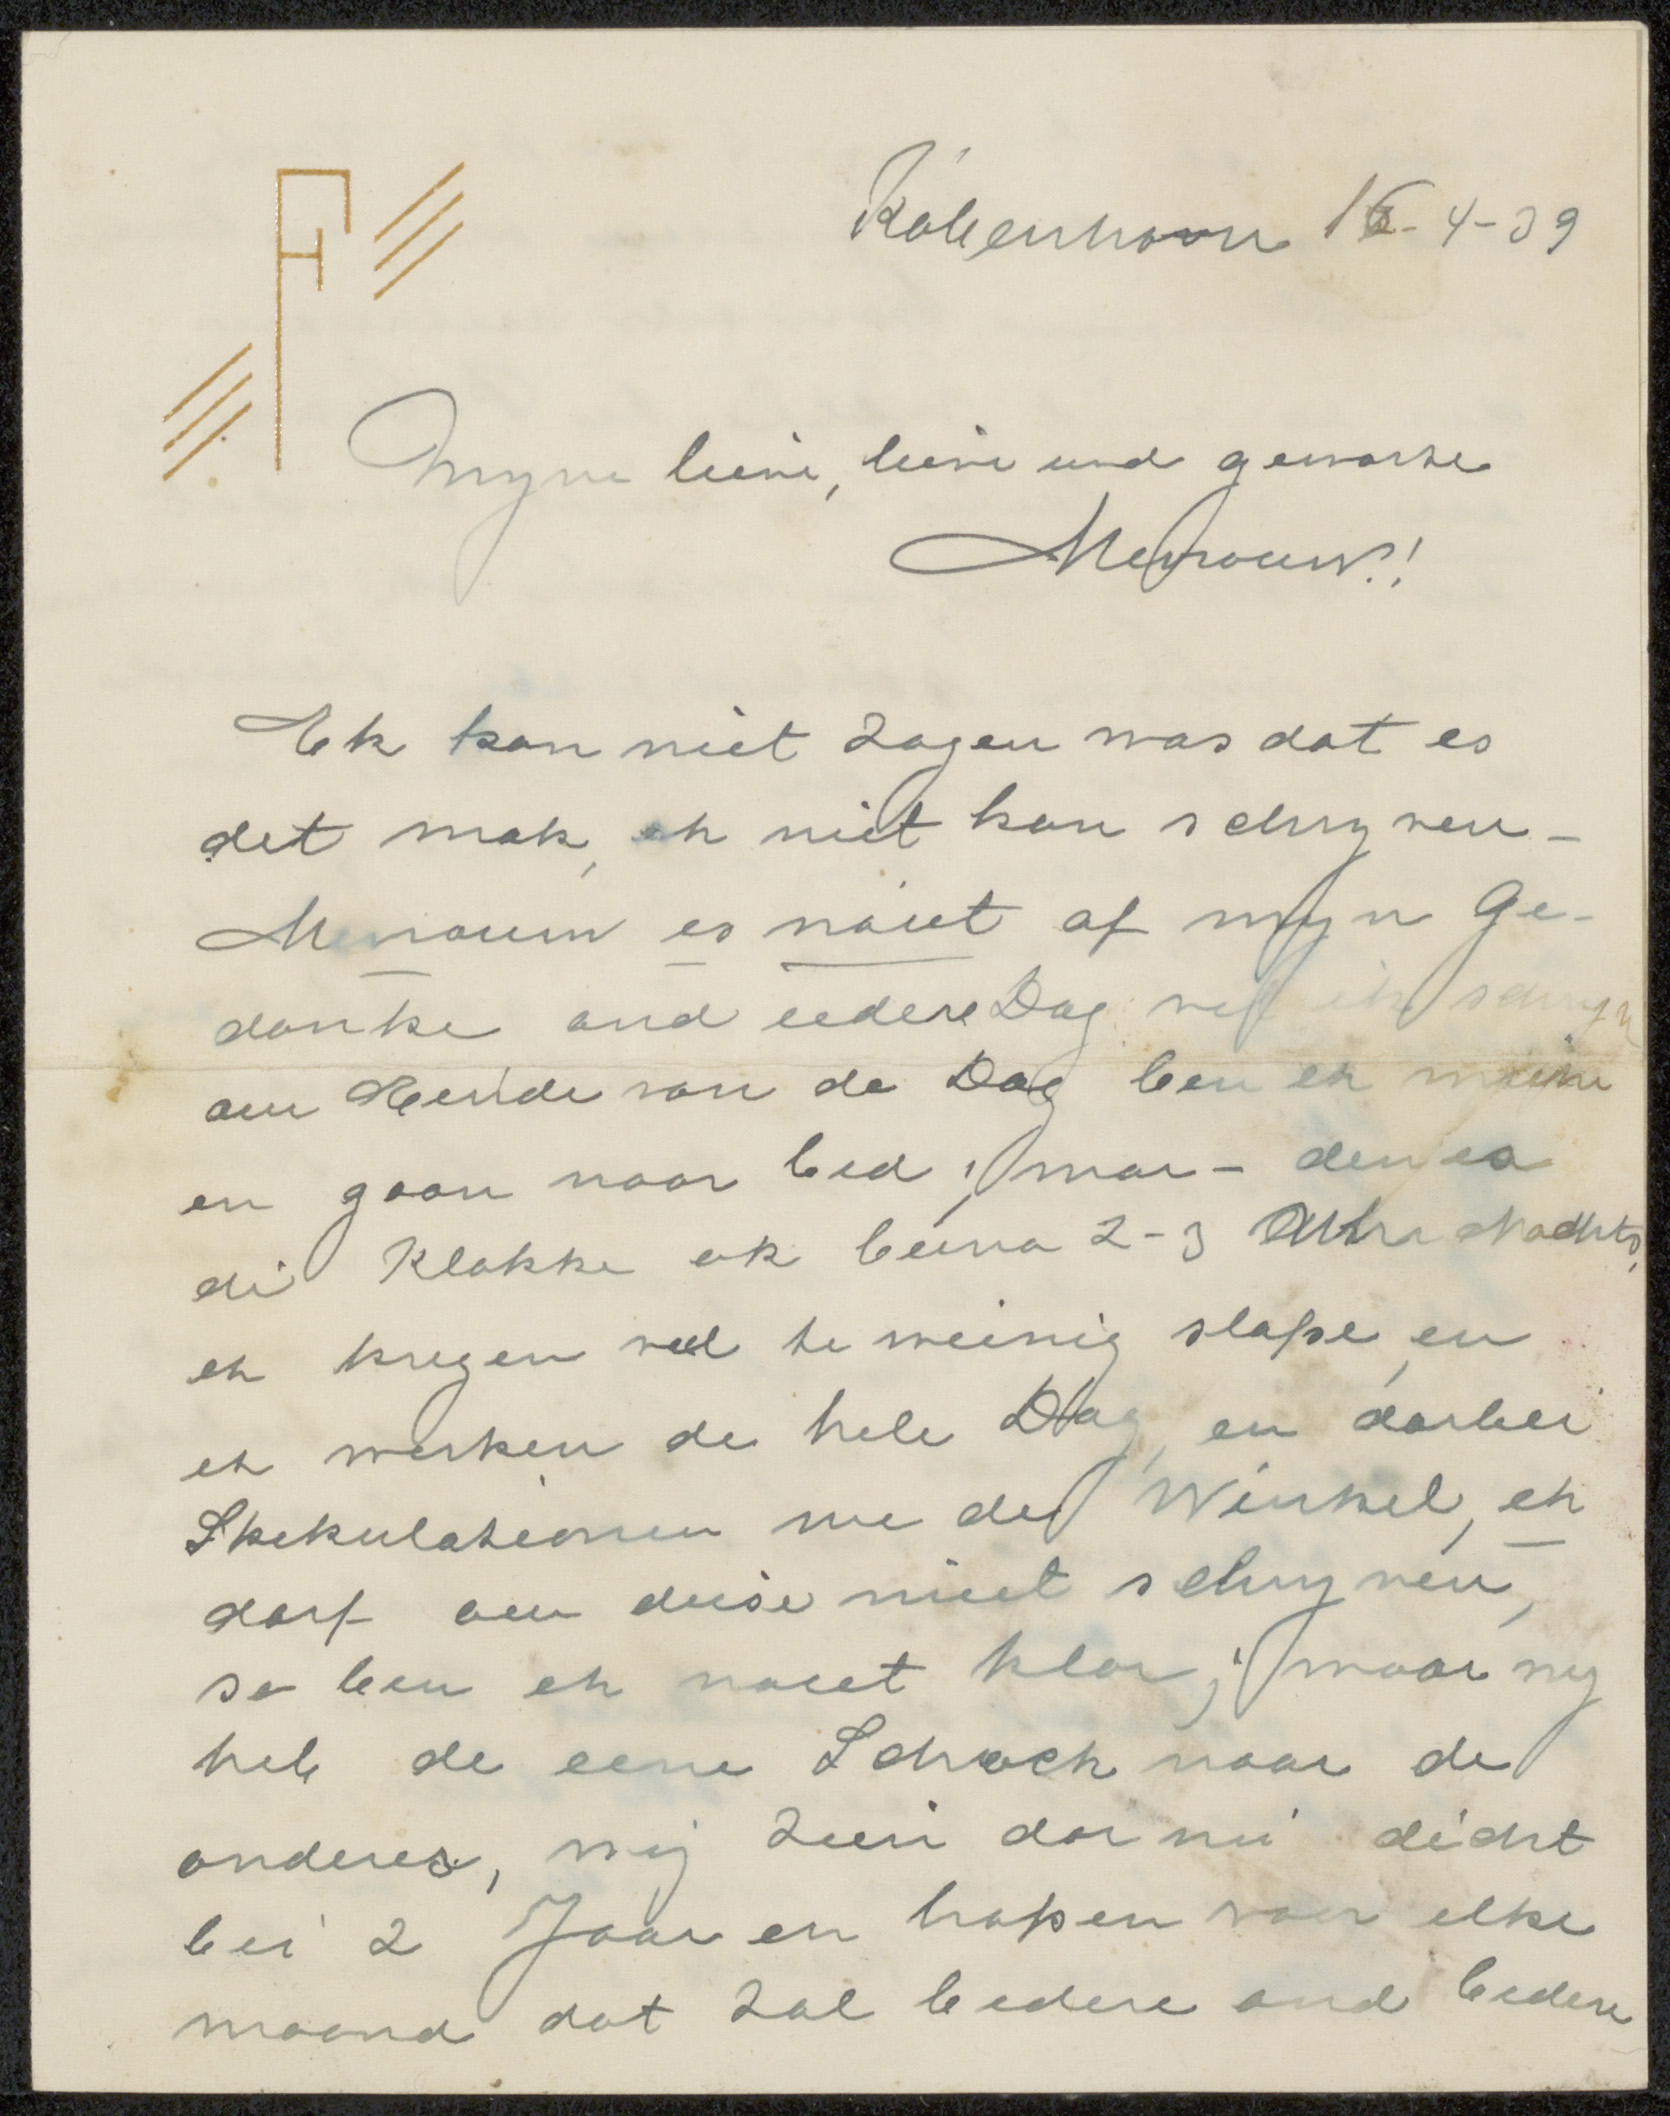 København 16-4-39
Myne lieve, lieve und gewarte
Mevrouw!
Ek kan niet zagen was dat es
det mak, ek niet kan schryven -
Mevrouw es nóiet af myn Ge-
danke and eedere Dag wel ek schryv
am Eende van de Dag ben ek muine
en gaan naar bed; mar - den es
di Klokke ok beina 2-3 Uhr Nachts,
ek kregen veel te weinig slape, en
ek werken de hele Dag, en darbei
Spekulationen me de Winkel, ek
darf aen diese niet schryven,
so ben ek noiet klar; maar my
heb de eene Schock naar de
anderes, wij zein dar nu dicht
bei 2 Jaar en hopen voor elke
maand dat zal bedere and bedere